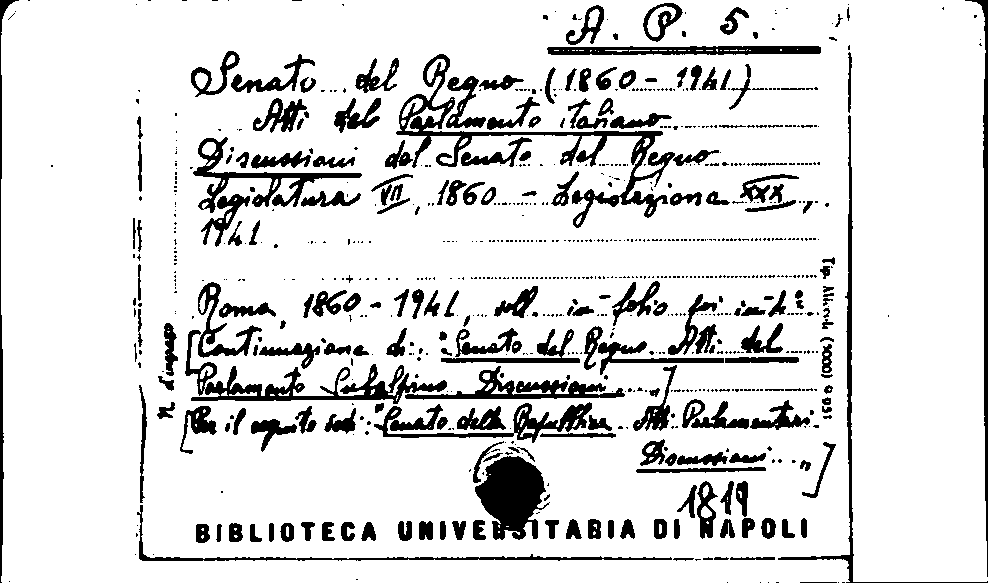 A. P. 5.
Senato del Regno (1860 - 1941)
Atti del Parlamento italiano
Discussioni del Senato del Regno
Legislatura VII, 1860 - Legislazione XXX,
1941.
Roma, 1860 - 1941, voll. in-folio poi in-4°
[Continuazione di: "Senato del Regno. Atti del
Parlamento Subalpino. Discussioni...."]
[Per il seguito vedi: "Senato della Repubblica. Atti Parlamentari.
Discussioni..."]
1819
BIBLIOTECA UNIVERSITARIA DI NAPOLI
N. d'ingresso
Tip.